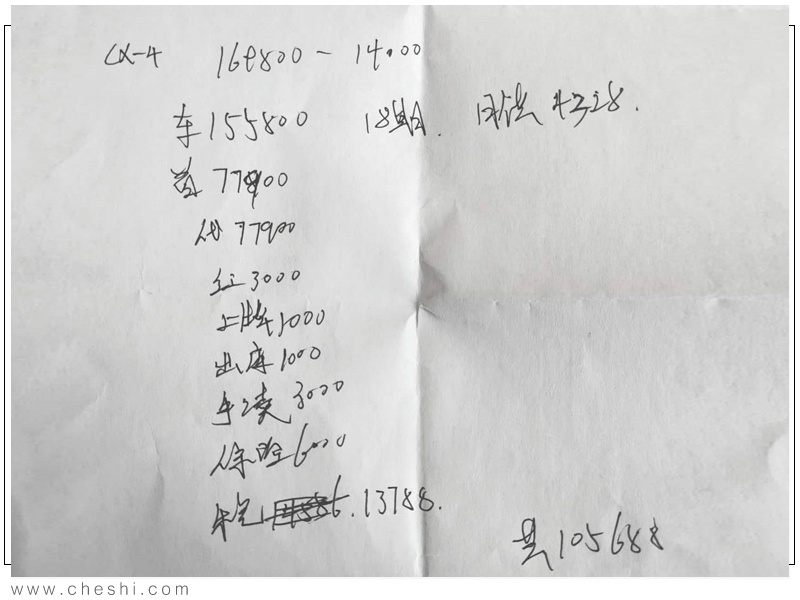 CX-4 169800 - 14000
车 155800 18期. 月供 4328.
首 77900
代 77900
3000
上牌 1000
出库 1000
手续 3000
保险 6000
13788.
共 105688
www.cheshi.com